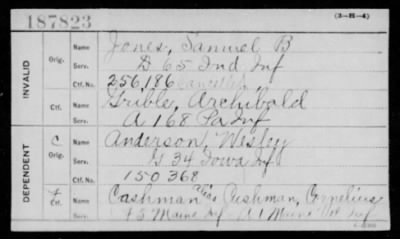 187823
(3-H-4)
INVALID
Orig.
Name
Jones, Samuel B
Serv.
D 65 Ind Inf
Ctf. No.
256,186 Cancelled
Ctf.
Name
Grible, Archibald
Serv.
A 168 Pa Inf
DEPENDENT
C
Orig.
Name
Anderson, Wesley
Serv.
G 34 Iowa Inf
Ctf. No.
150 368
Ctf.
Name
Cashman alias Cushman, Cornelius
Serv.
Maine Inf